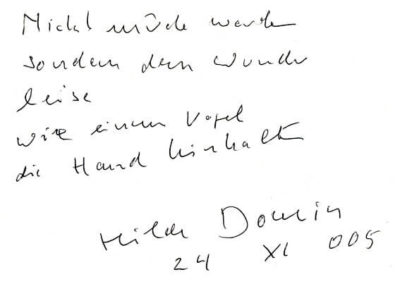 Nicht müde werden
sondern dem Wunder
leise
wie einem Vogel
die Hand hinhalten
Hilde Domin
24 XI 005